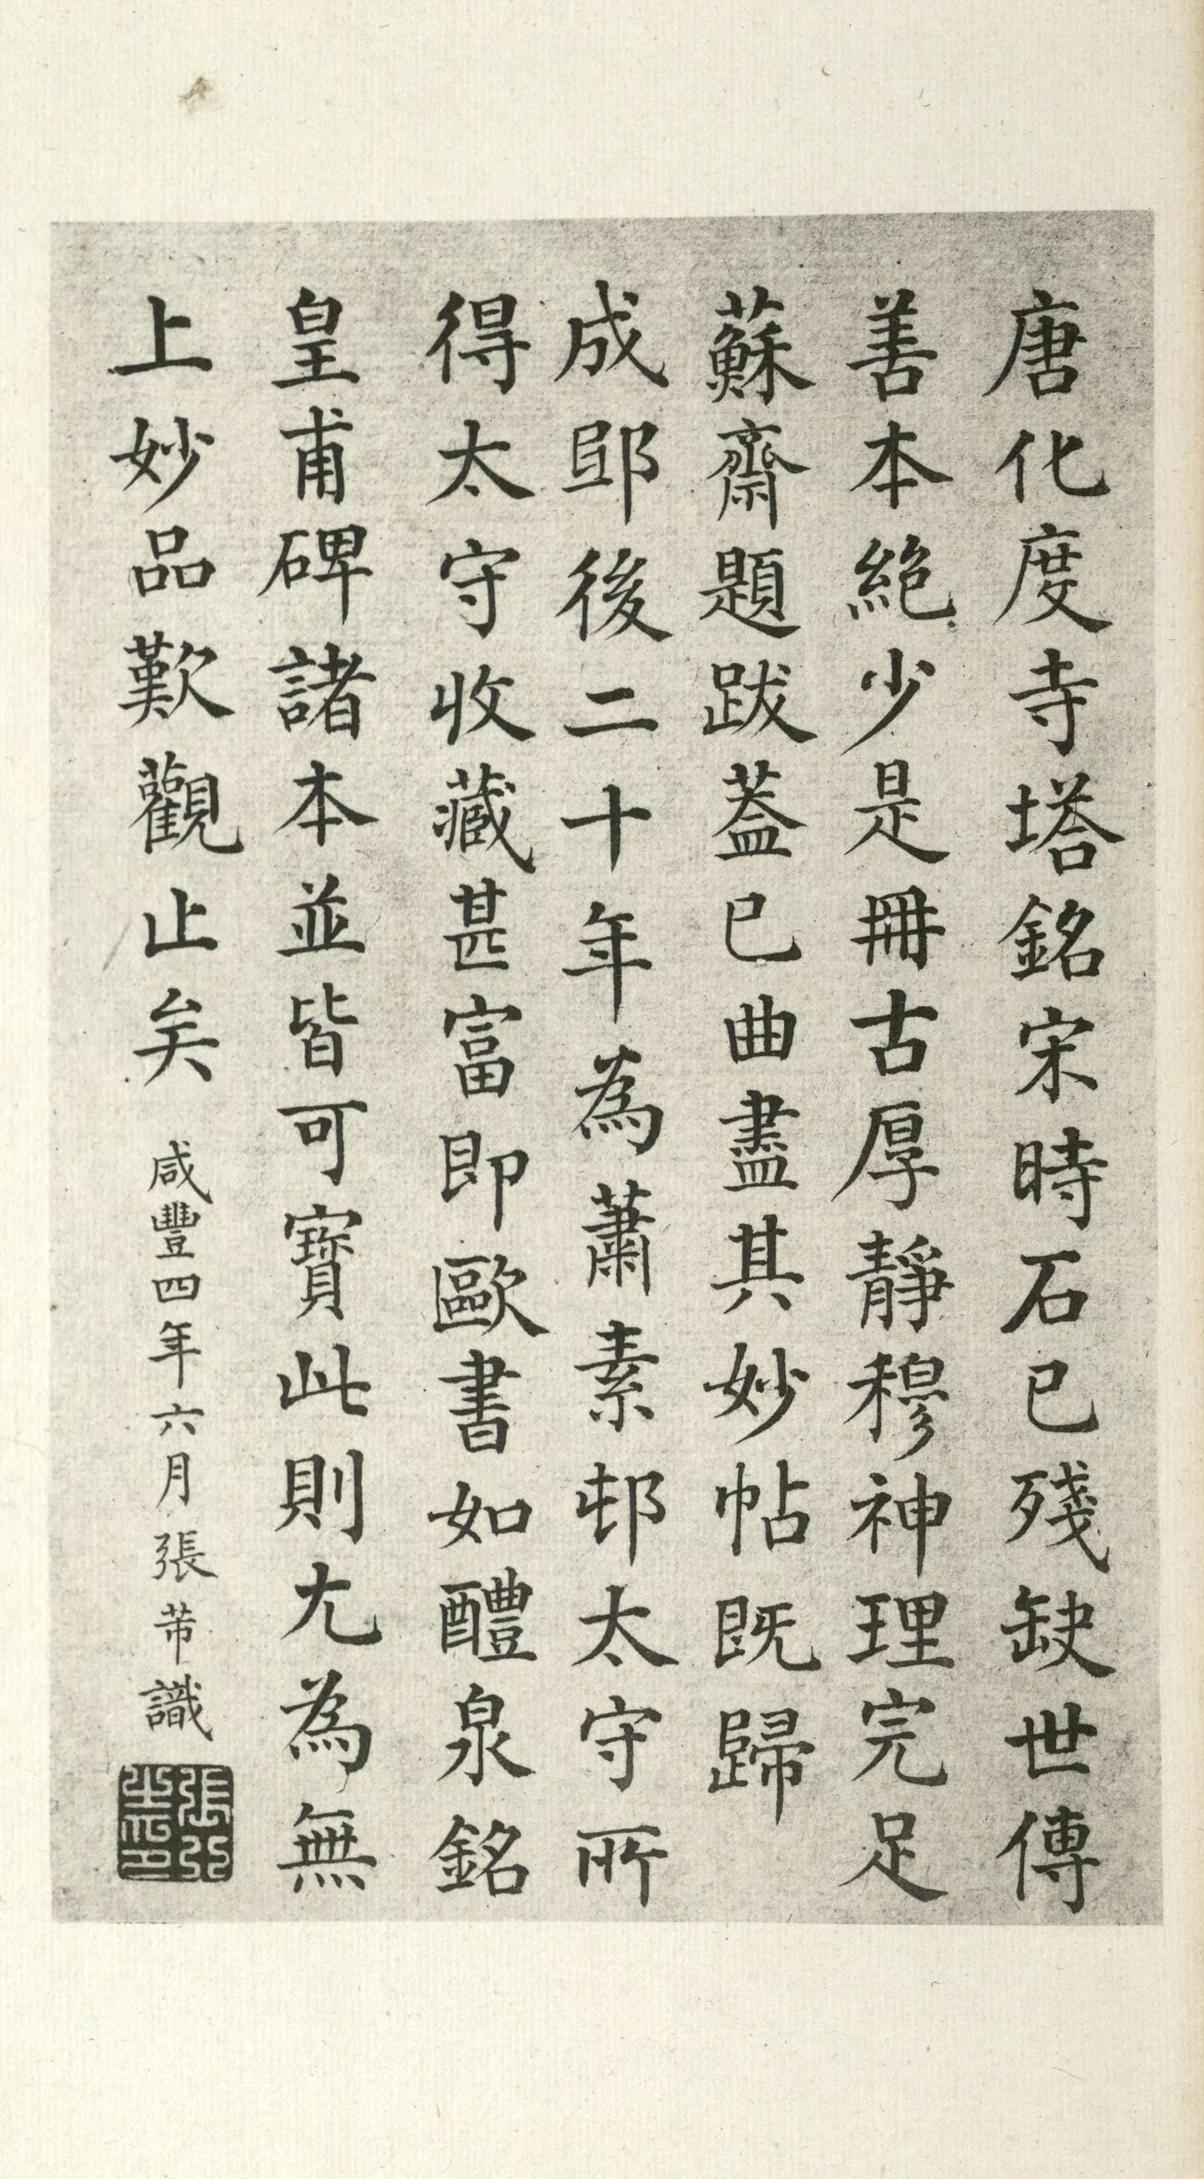 唐化度寺塔銘宋時石已殘缺世傳
善本絶少是冊古厚靜穆神理完足
蘇齋題跋葢已曲盡其妙帖既歸
成郎後二十年為蕭素邨太守所
得太守收藏甚富即歐書如醴泉銘
皇甫碑諸本並皆可寶此則尤為無
上妙品歎觀止矣
咸豐四年六月張芾識